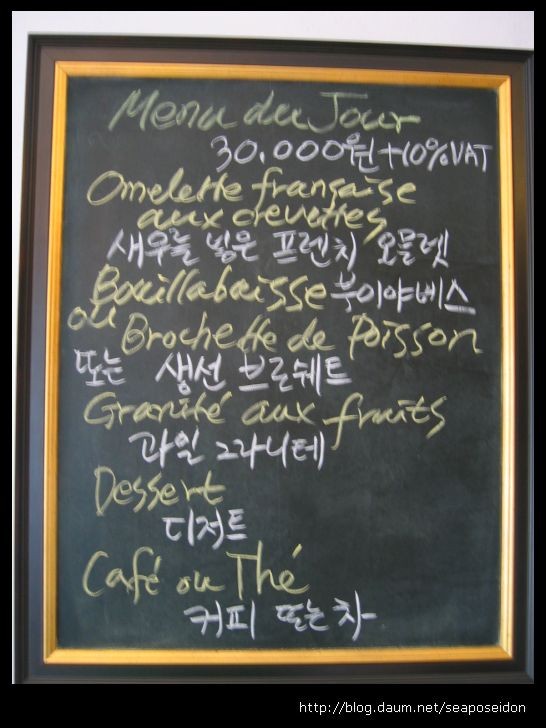 Menu du Jour
30.000원+10%VAT
Omelette française
aux crevettes
새우를 넣은 프렌치 오믈렛
Bouillabaisse 부이야베스
ou Brochette de Poisson
또는 생선 브로쉐트
Granité aux fruits
과일 그라니테
Dessert
디저트
Café ou Thé
커피 또는 차
http://blog.daum.net/seaposeidon